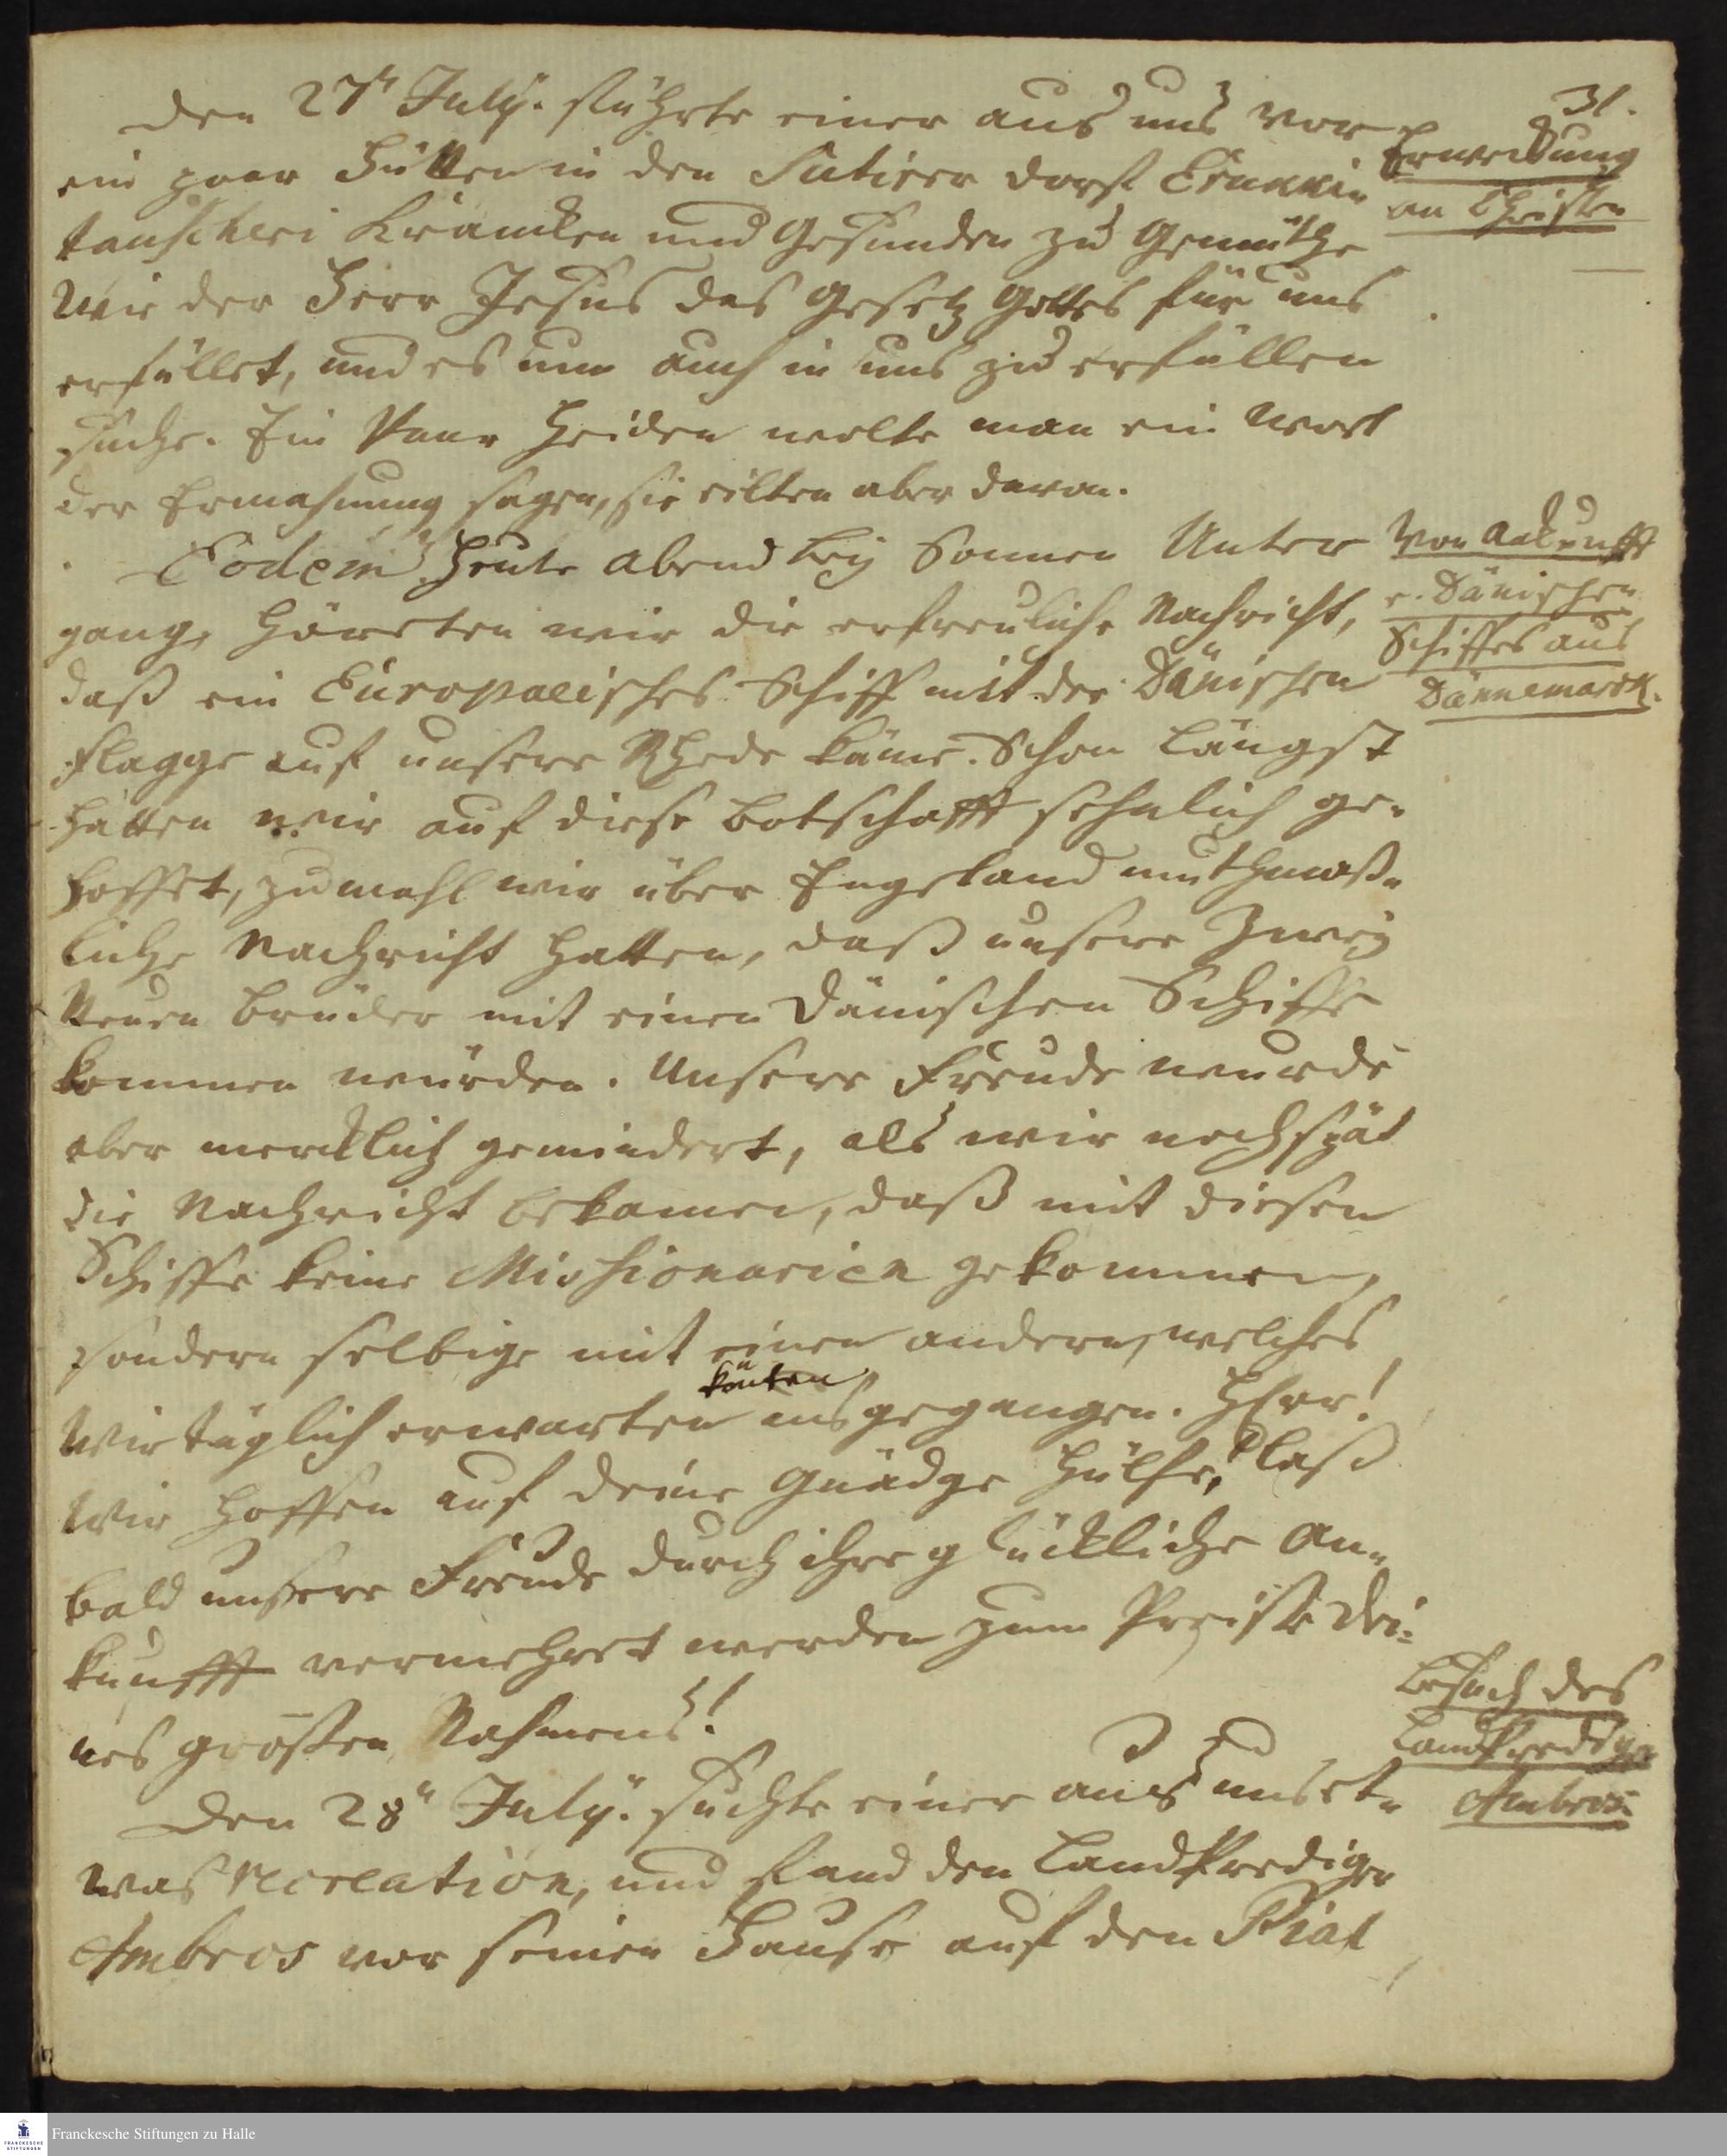 31.
Den 27st July. führte einer aus uns vor
ein paar Hütten in den Sutirer dorf Erukki-
tanscheri Krancken und Gesunden zu Gemüthe
Wie der Herr Jesus das Gesetz Gottes für uns
erfüllet, und es nun auch in uns zu erfüllen
suche. Ein Paar Heiden wolte man ein Wort
der Ermahnung sagen, sie eilten aber davon.
Erweckung
an Christen
Eodem Heute Abend bey Sonnen Unter
gang, höreten wir die erfreuliche Nachricht,
daß ein Europaeisches Schiff mit der Dänischen
Flagge auf unsere Rhede käme. Schon längst
hatten wir auf diese Botschafft sehnlich ge-
hoffet, zumahl wir über Engeland muthmaß-
liche Nachricht hatten, daß unsere Zwey
Neuen Brüder mit einen Dänischen Schiffe
kommen würden. Unsere Freude wurde
aber mercklich gemindert, als wir noch spät
die Nachricht bekamen, daß mit diesen
Schiffe keine Missionarien gekommen,
sondern selbige mit einen andern, welches
könten
Wir täglich erwarten ausgegangen. HErr!
Wir hoffen auf deine Gnädge Hülfe, laß
bald unsere Freude durch ihre glückliche An-
kunfft vermehret werden zum Preise dei-
nes großen Nahmens!
Von Ankunfft
e. Dänischen
Schiffes aus
Dännemarck.
Den 28st July. suchte einer aus uns et-
was recreation, und fand den Landprediger
Ambros vor seinen Hause auf den Pial
Besuch des
Landpredigers
Ambros.
Franckesche Stiftungen zu Halle
FRANCKESCHE
STIFTUNGEN